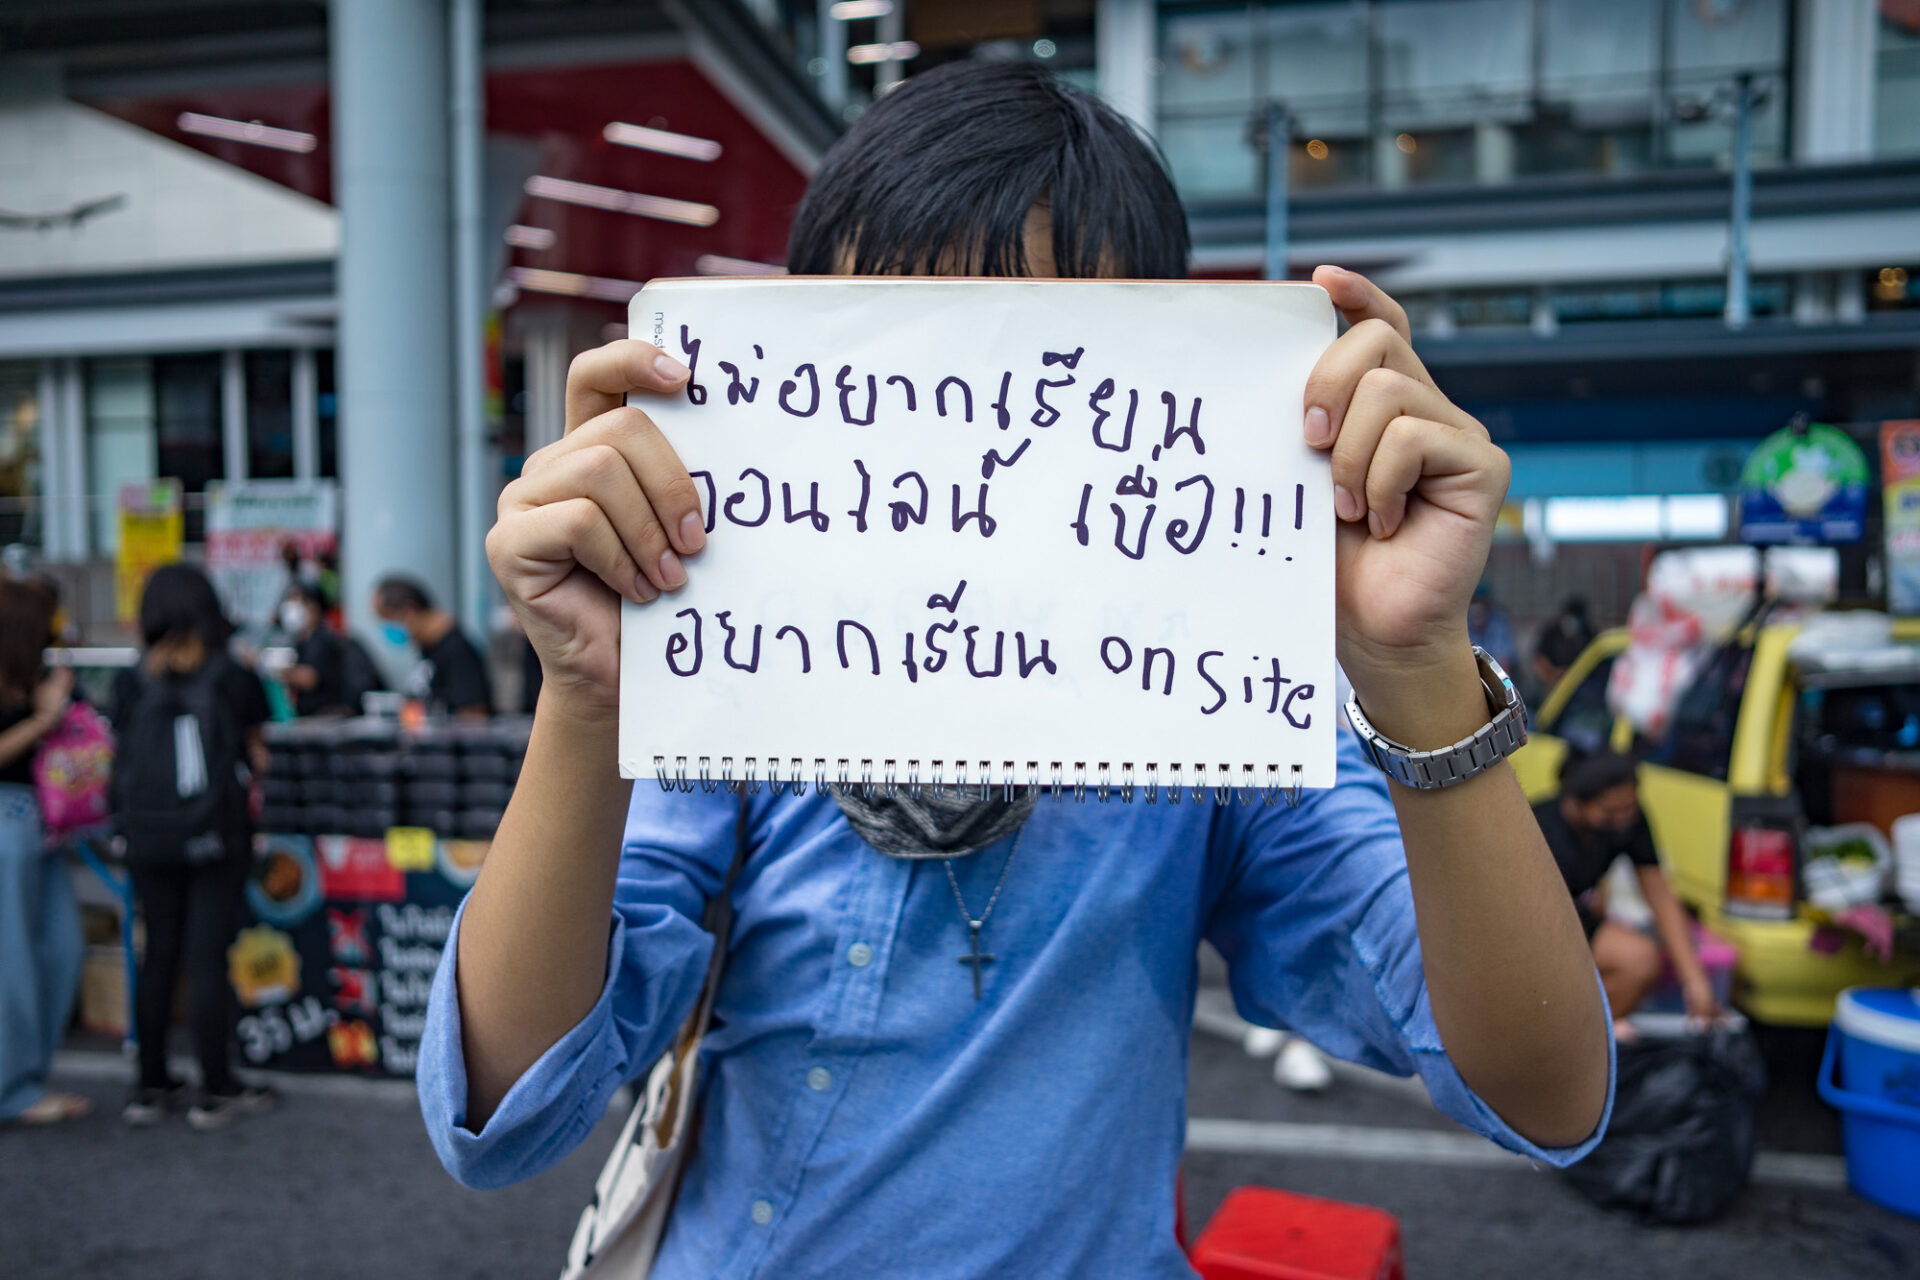 ไม่อยากเรียน
ออนไลน์ เบื่อ!!!
อยากเรียน onsite
35 บ.